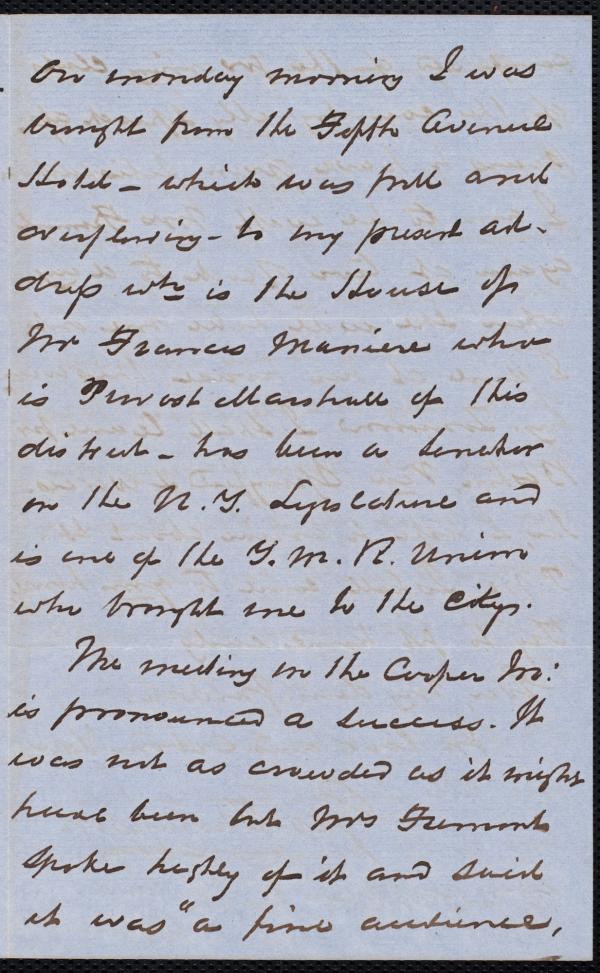 On monday morning I was
brought from the Fifth Avenue
Hotel - which was full and
overflowing - to my present ad-
dress wh is the House of
Mr Francis Maniere who
is Provost Marshall of this
district - has been a Senator
in the N.Y. Legislature and
is one of the Y. M. R. Union
who brought me to the City.
The meeting in the Cooper Ins:
is pronounced a success. It
was not as crowded as it might
have been but Mrs Fremont
spoke highly of it and said
it was "a fine audience,